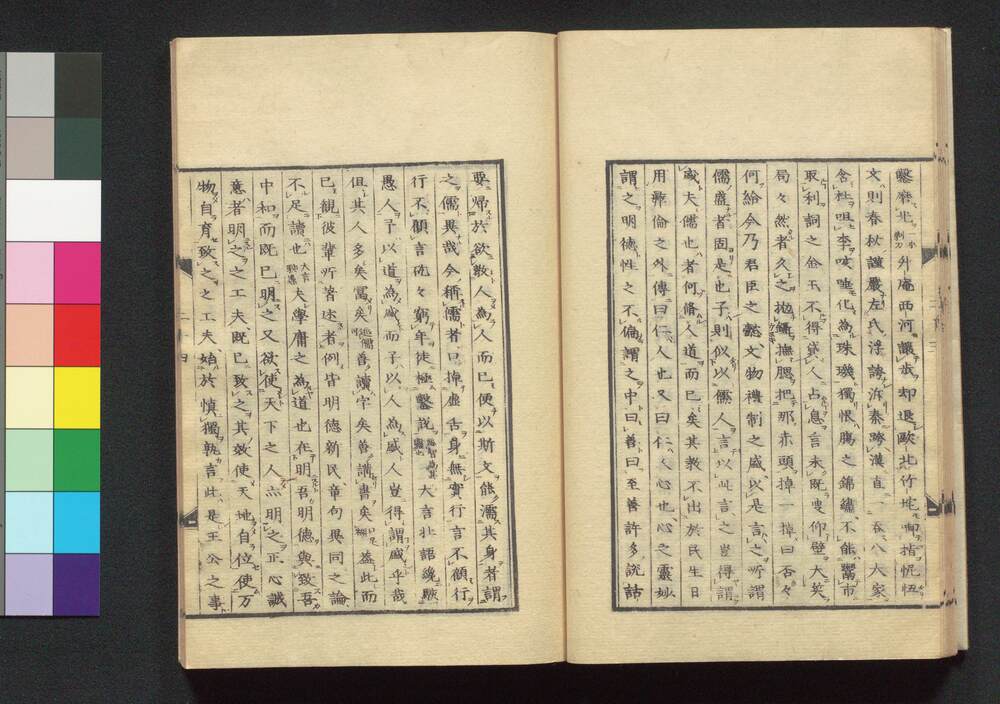 外庵西河讓步却退歐北竹
文則春秋謹嚴左氏浮誇派秦跨漢直吞八大家
含杜咀李咳唾化為珠璣獨恨腸之錦繡不能鬻市
取利詞之金玉不得人占息言未既叟仰壁大笑
局々然者久之拋撫腮把那赤頭掉一掉曰否々
何給今乃君臣之懿文物禮制之盛以是言之所謂
儒盛者固是也子則似以儒人言以此言之豈得謂
盛夫儒也者何脩人道而已矣其教不出於民生日
用彝倫之外傳曰仁人也又曰仁人心也心之靈妙
謂之明德性之不偏謂之中曰善曰至善許多說詁
要歸於欲教人為人而已便以斯文能濡其身者謂
之儒異哉今稱儒者口掉虛舌身無實行言不顧行
行不顧言矻々窮年徒極鑿說大言壯語譏
愚人子以道為盛而子以人為盛人豈得謂盛乎哉
但其人多矣富矣善讀字矣善講書矣蓋此而
已觀彼輩所著述者例皆明德新民章句異同之論
不足讀也夫學庸之為道也在明吾明德與致吾
中和而既已明之又欲使天下之人亦明之正心誠
意者明之之工夫既已致之其效使天地自位使万
物自育致之之工夫始於慎獨孰言此是王公之事
二
四